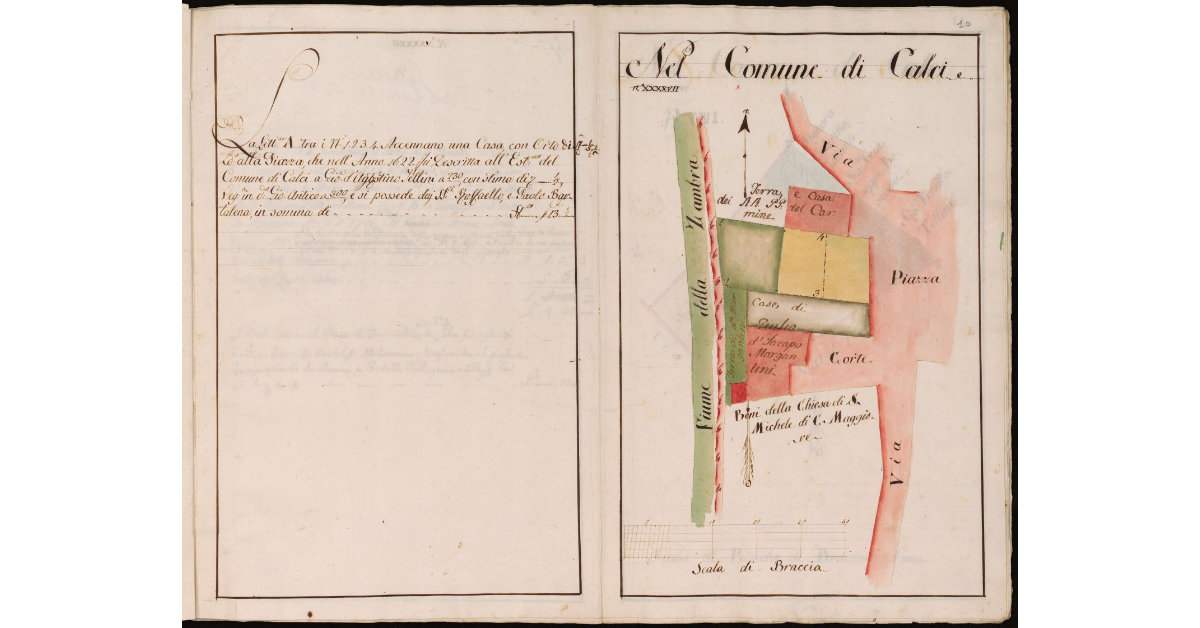 La Lett.ra A. tra i N.i 1.2.3.4. Accennano una Casa, con Orto di
L.o alla Piazza, che nell'Anno 1622 fù Descritta all'Est.mo del
Comune di Calci a Gio: d'Agostino a 230 con stima di
veg in d.o Gio: Antico a 300, e si possede dg. S.ri Raffaello, e Paolo Bar-
taleno, in somma di
10
Nel Comune di Calci
n.o XXXXVII
Via
Terra, e Casa
dei RR. PP. del Car-
mine
Fiume della Zambra
4
2
3
Piazza
Casa di
Giulio
d.o Jacopo
Morgan-
tini
Corte
Beni della Chiesa di S.
Michele di C. Maggio-
re
Via
Scala di Braccia